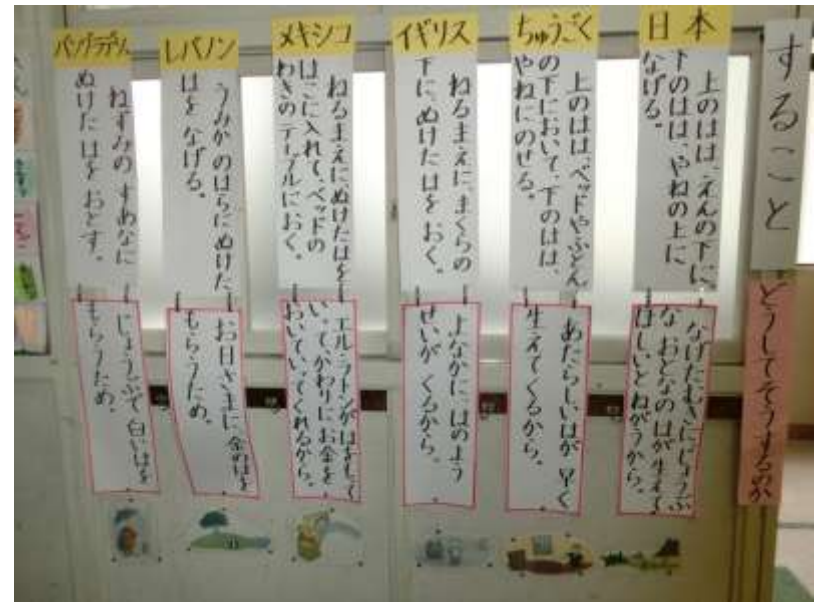 すること
どうしてそうするのか
日本
上のはは、えんの下に、
下のはは、やねの上に
なげる。
なげたむきにじょうぶ
な おとなのはが生えて
ほしいとねがうから。
ちゅうごく
上のはは、ベッドやふとん
の下において、下のはは、
やねにのせる。
あたらしいはが 早く
生えてくるから。
イギリス
ねるまえに、まくらの
下に、ぬけたはを おく。
よなかに、はのよう
せいが くるから。
メキシコ
ねるまえに、ぬけたはを
はこに入れて、ベッドの
わきのテーブルにおく。
エルラトンが はをもって
いって、かわりにお金を
おいていってくれるから。
レバノン
うみか のはらに ぬけた
はを なげる。
お日さまに 金のはを
もらうため。
バングラデシュ
ねずみの すあなに
ぬけた はを おとす。
じょうぶで 白いはを
もらうため。